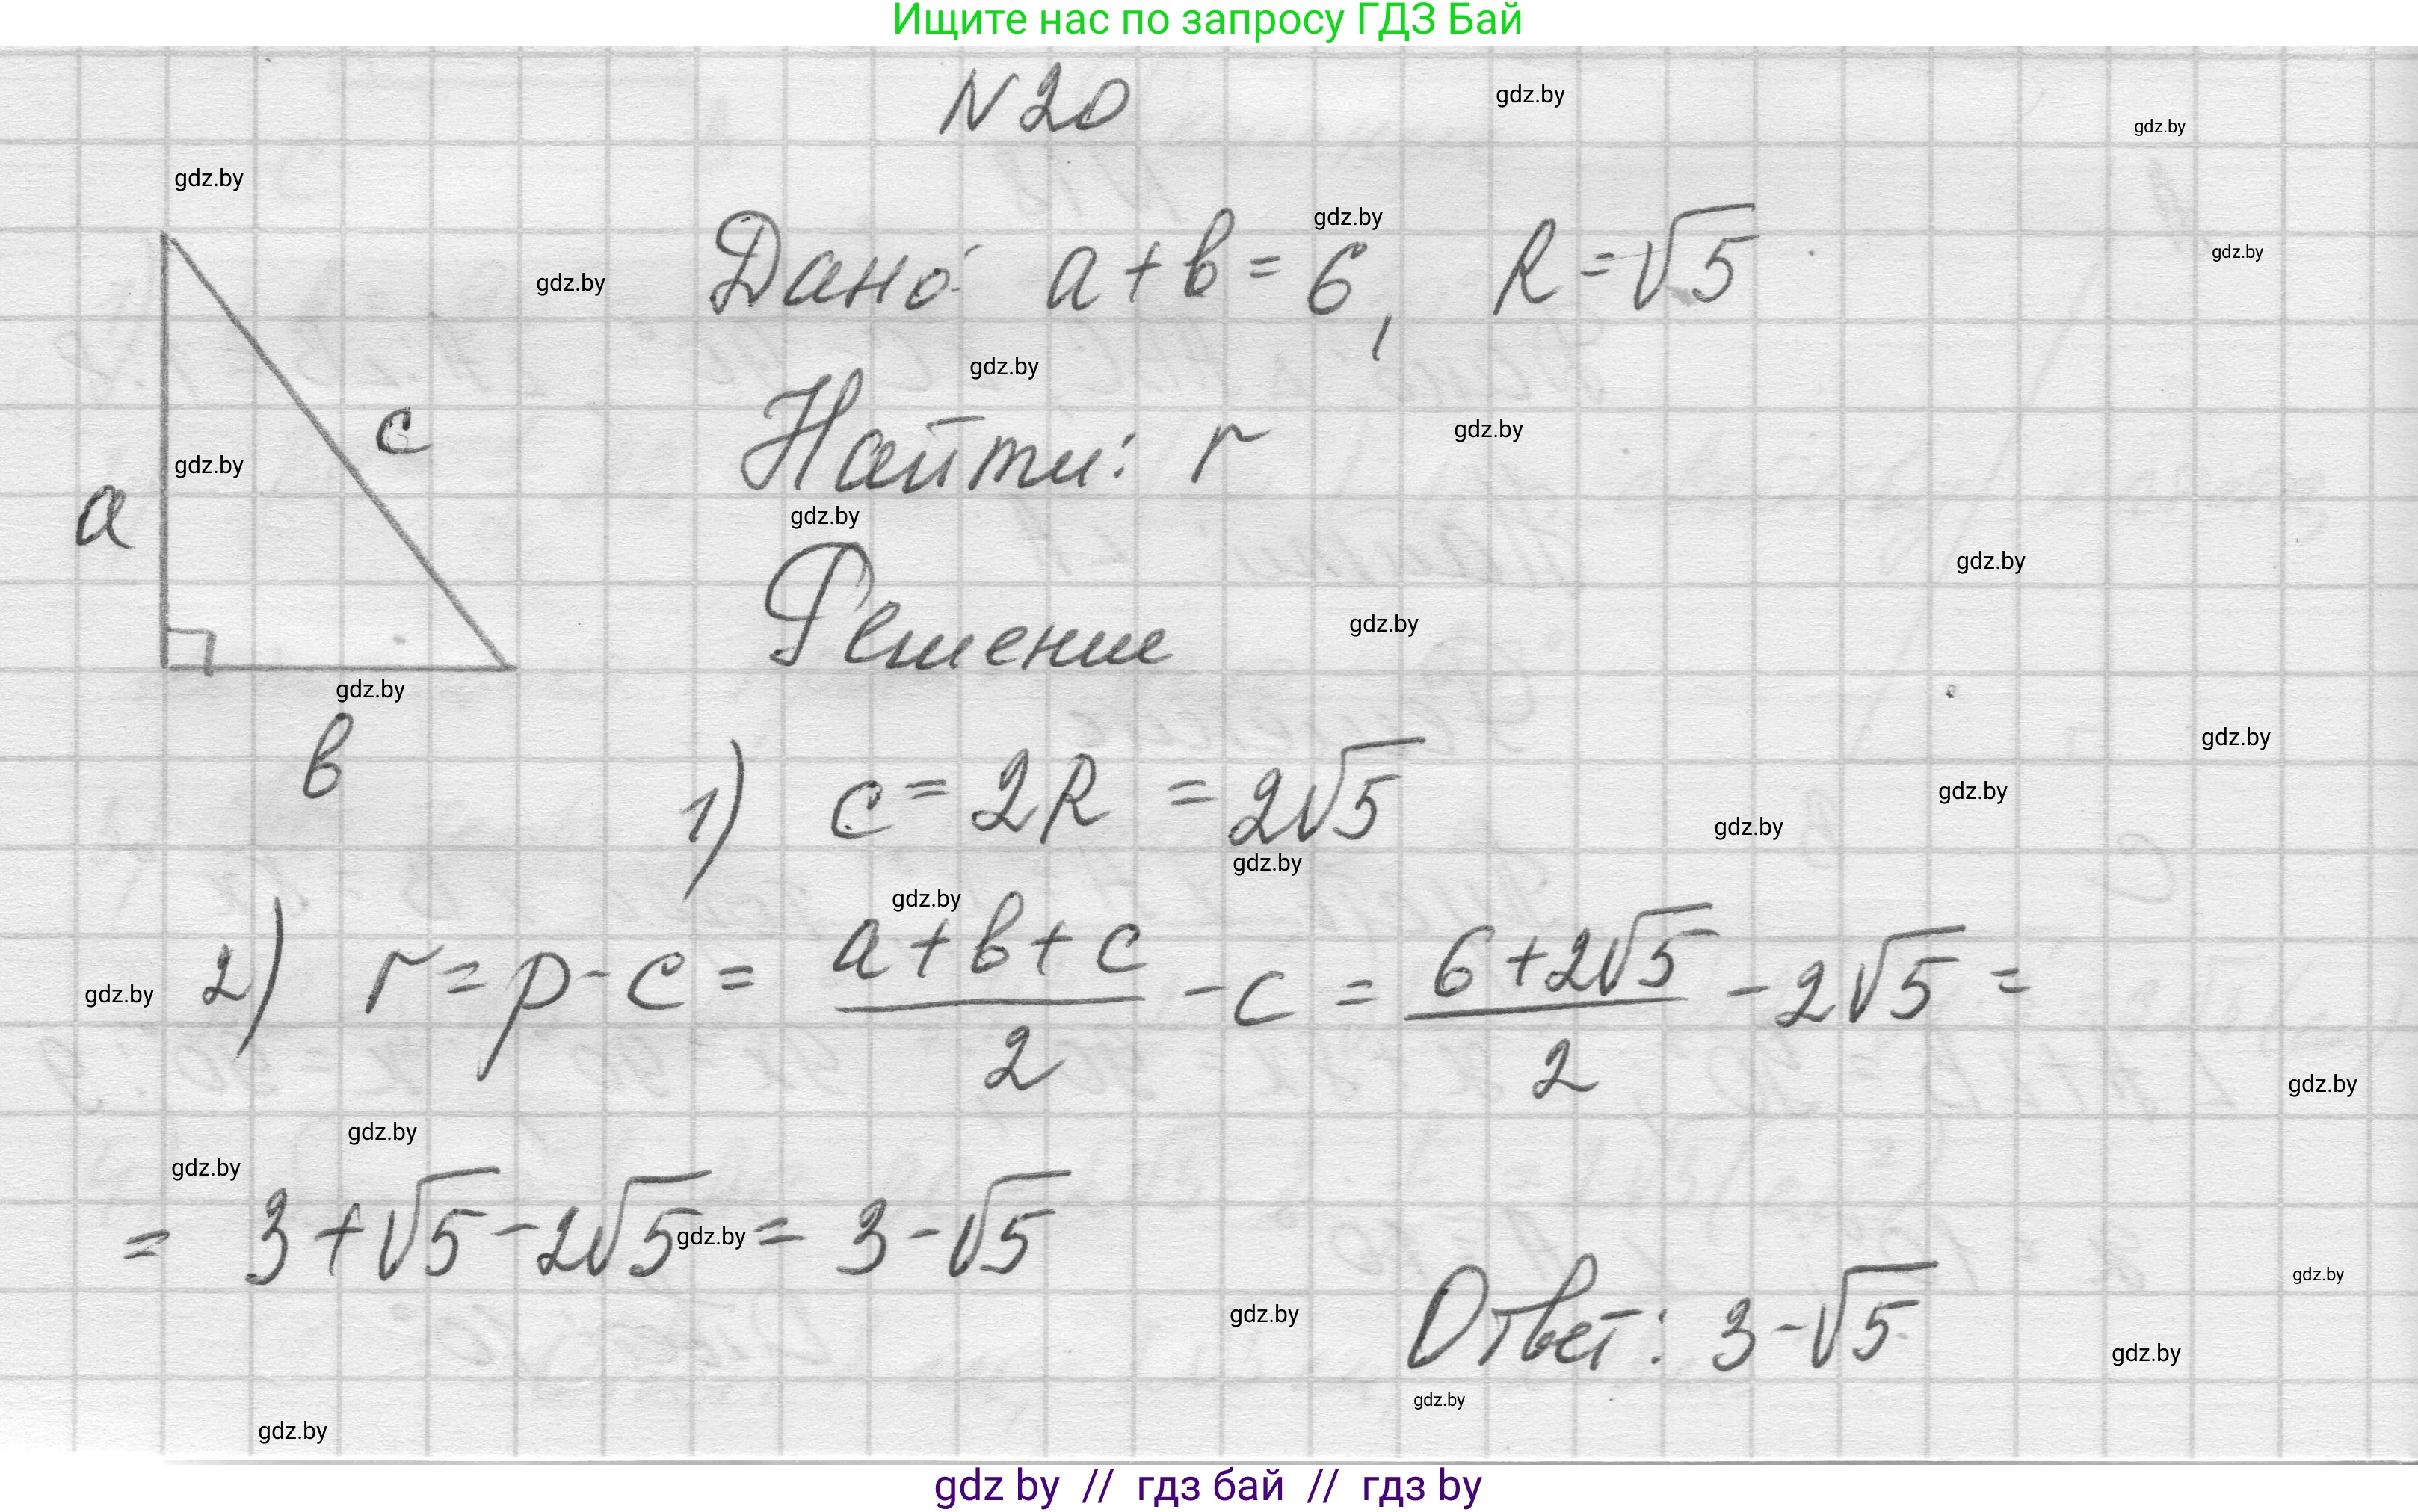 Ищите нас по запросу ГДЗ Бай
N 20
gdz.by
gdz.by
gdz.by
Дано: a + в = 6, R = √5
gdz.by
gdz.by
gdz.by
gdz.by
Найти: r
c
gdz.by
gdz.by
a
gdz.by
gdz.by
Решение
gdz.by
gdz.by
в
gdz.by
1) c = 2R = 2√5
gdz.by
gdz.by
gdz.by
gdz.by
2) r = p - c = (a + в + c)/2 - c = (6 + 2√5)/2 - 2√5 =
gdz.by
gdz.by
gdz.by
gdz.by
= 3 + √5 - 2√5 = 3 - √5
gdz.by
gdz.by
gdz.by
Ответ: 3 - √5
gdz.by
gdz.by
gdz.by
gdz by // гдз бай // гдз by